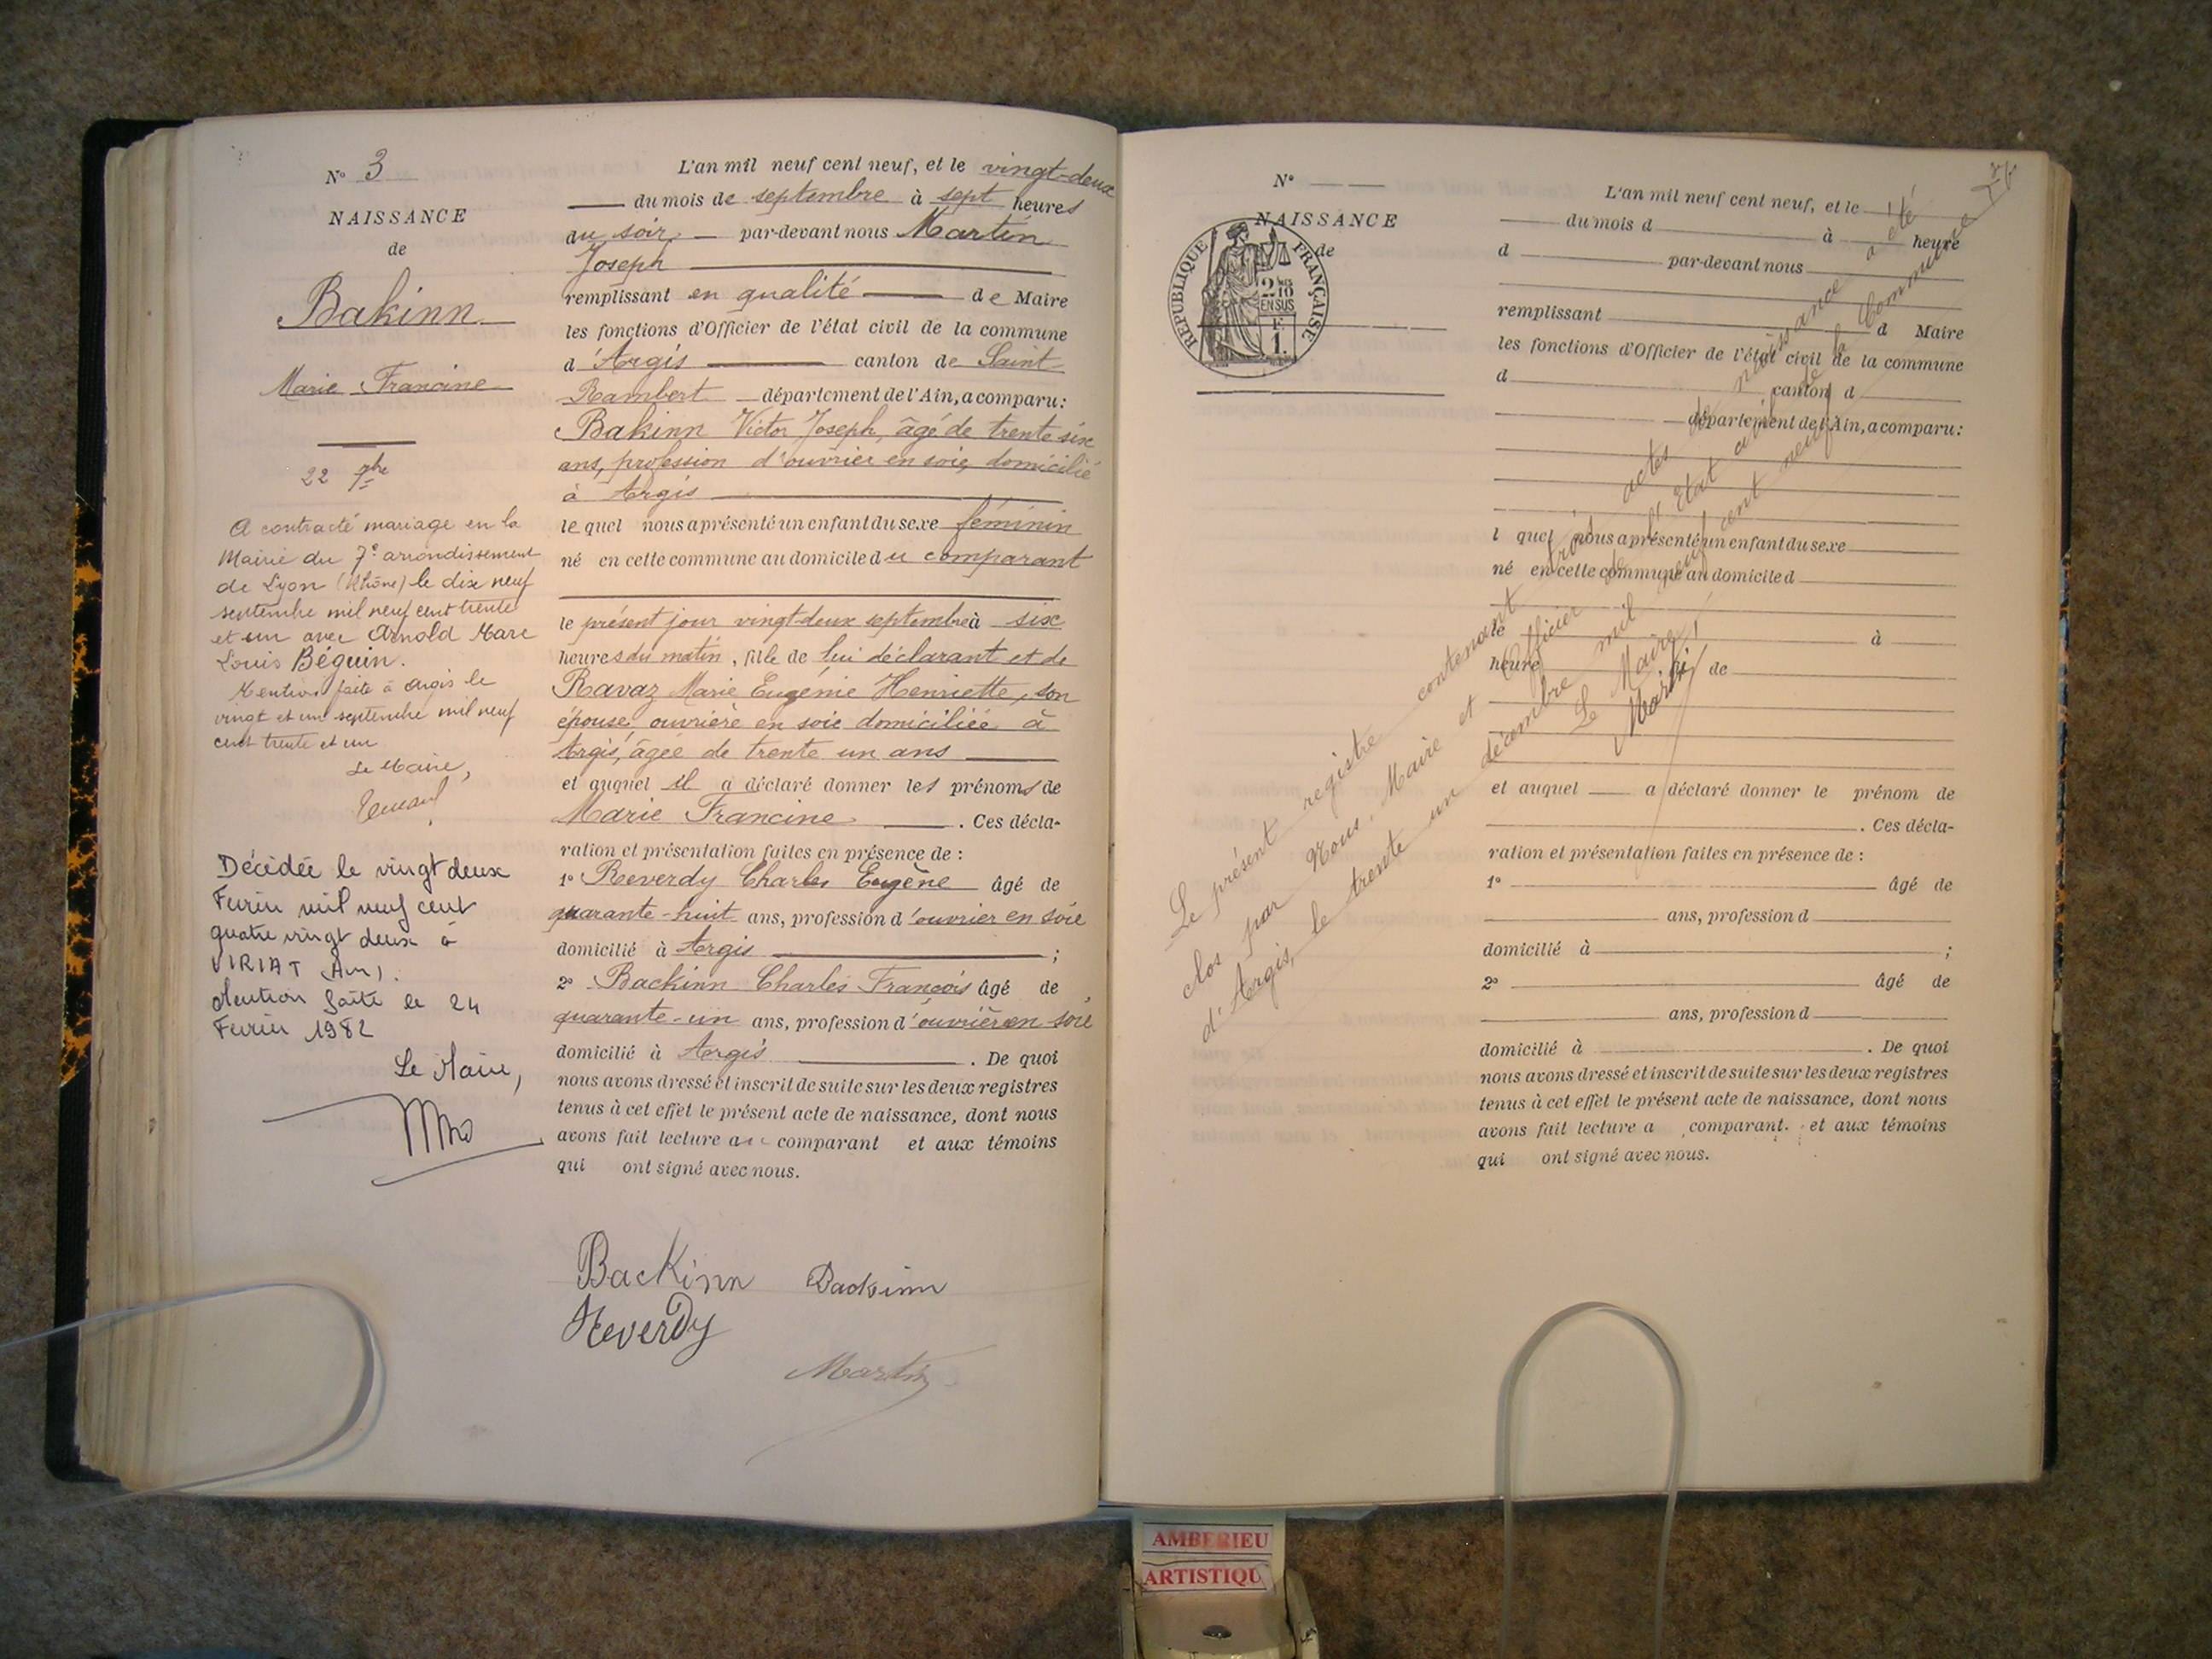 N° 3
NAISSANCE
de
Bakinn
Marie Francine
22 7bre
A contracté mariage en la
Mairie du 7e arrondissement
de Lyon (Rhône) le dix neuf
septembre mil neuf cent trente
et un avec Arnold Marc
Louis Béguin.
Mention faite à Argis le
vingt et un septembre mil neuf
cent trente et un
Le Maire,
Décédée le vingt deux
Février mil neuf cent
quatre vingt deux à
VIRIAT (Ain).
Mention faite le 24
Février 1982
Le Maire,
L'an mil neuf cent neuf, et le vingt-deux
du mois de septembre à sept heures
du soir par-devant nous Martin
Joseph
remplissant en qualité de Maire
les fonctions d'Officier de l'état civil de la commune
d'Argis canton de Saint-
Rambert département de l'Ain, a comparu:
Bakinn Victor Joseph, âgé de trente six
ans, profession d'ouvrier en soie, domicilié
à Argis
le quel nous a présenté un enfant du sexe féminin
né en cette commune au domicile du comparant
le présent jour vingt-deux septembre à six
heures du matin, fille de lui déclarant et de
Ravaz Marie Eugénie Henriette, son
épouse, ouvrière en soie domiciliée à
Argis, âgée de trente un ans
et auquel il a déclaré donner les prénoms de
Marie Francine. Ces décla-
ration et présentation faites en présence de :
1° Reverdy Charles Eugène âgé de
quarante-huit ans, profession d'ouvrier en soie
domicilié à Argis ;
2° Backinn Charles François âgé de
quarante-un ans, profession d'ouvrier en soie
domicilié à Argis. De quoi
nous avons dressé et inscrit de suite sur les deux registres
tenus à cet effet le présent acte de naissance, dont nous
avons fait lecture au comparant et aux témoins
qui ont signé avec nous.
Backinn Backinn
Reverdy
Martin
N°
NAISSANCE
de
REPUBLIQUE FRANÇAISE
2/10
EN SUS
F.
1.
L'an mil neuf cent neuf, et le
du mois d à heure
d par-devant nous
remplissant d Maire
les fonctions d'Officier de l'état civil de la commune
d canton d
département de l'Ain, a comparu:
l quel nous a présenté un enfant du sexe
né en cette commune au domicile d
le à
heure de
et auquel a déclaré donner le prénom de
. Ces décla-
ration et présentation faites en présence de :
1° âgé de
ans, profession d
domicilié à ;
2° âgé de
ans, profession d
domicilié à . De quoi
nous avons dressé et inscrit de suite sur les deux registres
tenus à cet effet le présent acte de naissance, dont nous
avons fait lecture a comparant et aux témoins
qui ont signé avec nous.
Le présent registre contenant trois actes de naissance a été
clos par Nous, Maire et Officier de l'Etat civil de la Commune
d'Argis, le trente un décembre mil neuf cent neuf
Le Maire,
Martin
AMBERIEU
ARTISTIQU